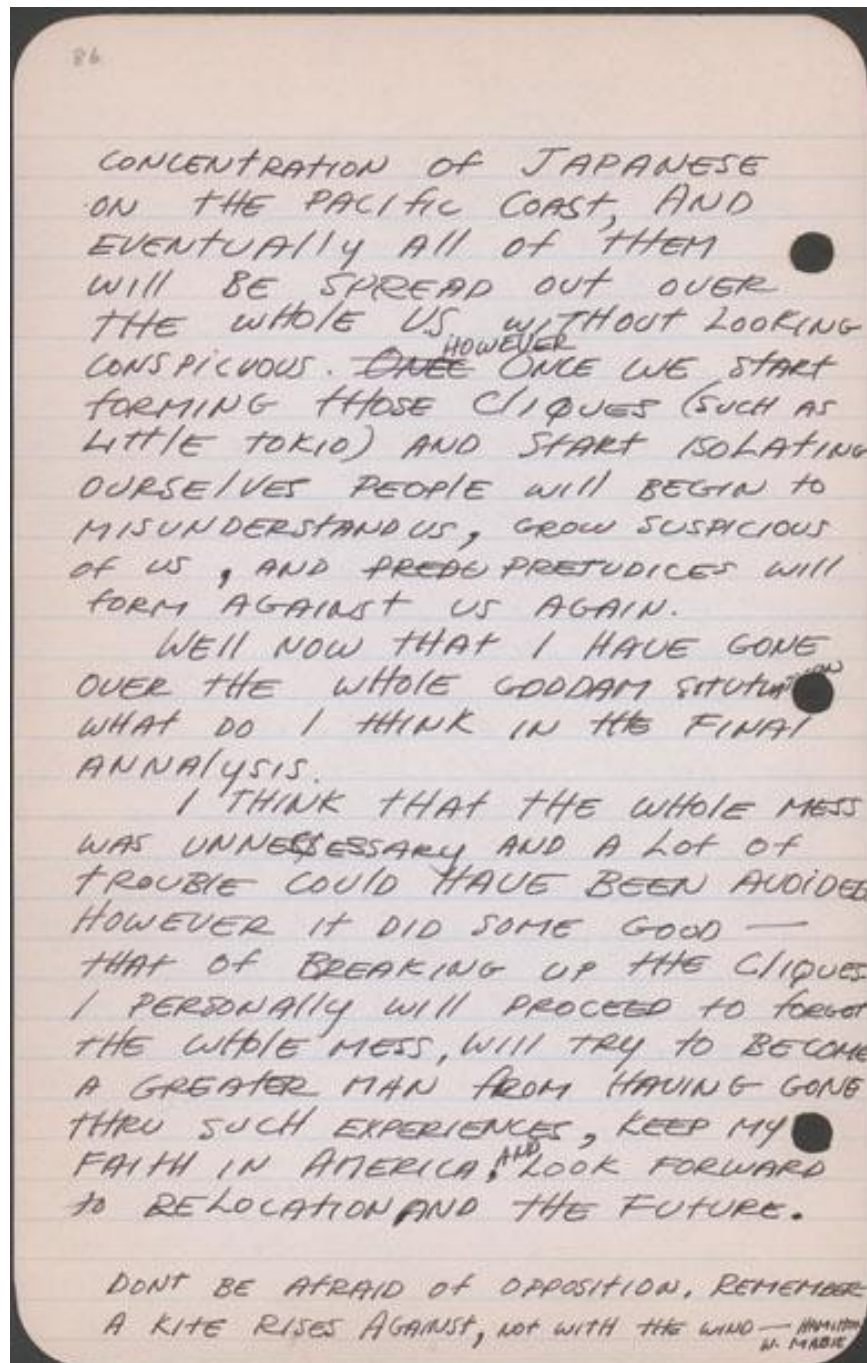 86
CONCENTRATION OF JAPANESE
ON THE PACIFIC COAST, AND
EVENTUALLY ALL OF THEM
WILL BE SPREAD OUT OVER
THE WHOLE US, WITHOUT LOOKING
CONSPICUOUS. ONCE HOWEVER ONCE WE START
FORMING THOSE CLIQUES (SUCH AS
LITTLE TOKIO) AND START ISOLATING
OURSELVES PEOPLE WILL BEGIN TO
MISUNDERSTAND US, GROW SUSPICIOUS
OF US, AND PREDU PREJUDICES WILL
FORM AGAINST US AGAIN.
WELL NOW THAT I HAVE GONE
OVER THE WHOLE GODDAM
WHAT DO I THINK IN THE FINAL
ANNALYSIS.
I THINK THAT THE WHOLE MESS
WAS UNNECESSARY AND A LOT OF
TROUBLE COULD HAVE BEEN AVOIDED
HOWEVER IT DID SOME GOOD —
THAT OF BREAKING UP THE CLIQUES
I PERSONALLY WILL PROCEED TO FORGET
THE WHOLE MESS, WILL TRY TO BECOME
A GREATER MAN FROM HAVING GONE
THRU SUCH EXPERIENCES, KEEP MY
FAITH IN AMERICA, AND LOOK FORWARD
TO RELOCATION AND THE FUTURE.
DONT BE AFRAID OF OPPOSITION. REMEMBER
A KITE RISES AGAINST, NOT WITH THE WIND — HAMILTON
W. MABIE